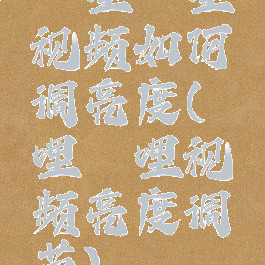 哩 哩
视频如何
调亮度(
哩 哩视
频亮度调
节)